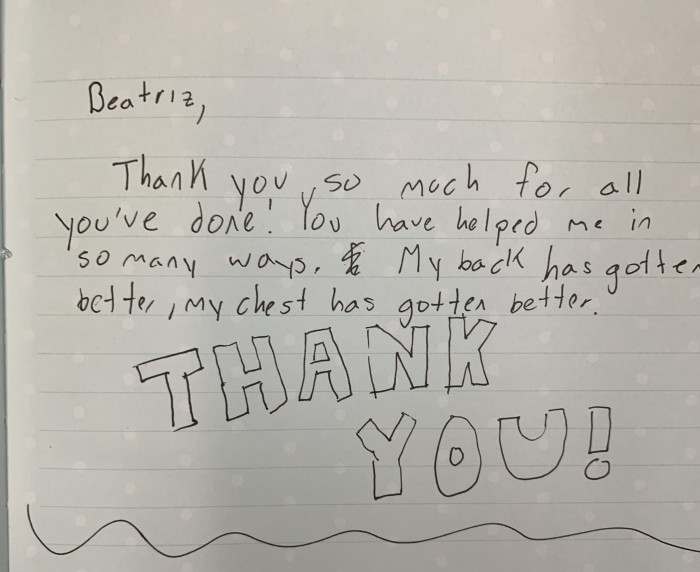 Beatriz,
Thank you so much for all
you've done! You have helped me in
so many ways. My back has gotten
better, my chest has gotten better.
THANK
YOU!